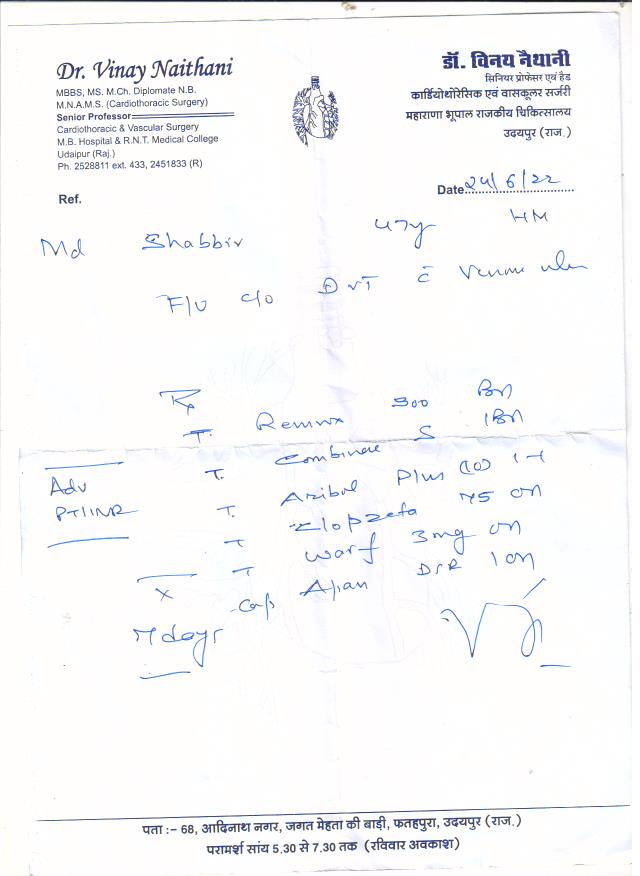 Dr. Vinay Naithani
MBBS, MS. M.Ch. Diplomate N.B.
M.N.A.M.S. (Cardiothoracic Surgery)
Senior Professor
Cardiothoracic & Vascular Surgery
M.B. Hospital & R.N.T. Medical College
Udaipur (Raj.)
Ph. 2528811 ext. 433, 2451833 (R)
डॉ. विनय नैथानी
सिनियर प्रोफेसर एवं हैड
कार्डियोथोरेसिक एवं वासकूलर सर्जरी
महाराणा भूपाल राजकीय चिकित्सालय
उदयपुर (राज.)
Ref.
Date २५/6/22
Md Shabbir 47y HM
F/U c/o DVT c̄
Rx
T. 300 BD
T. Combinae S 1BD
Adv
PT/INR
T. Plus (10)
T. Clopzeta 75 OD
T Warf 3mg OD
Cap DSR 1 OD
x
7 days
पता :– 68, आदिनाथ नगर, जगत मेहता की बाड़ी, फतहपुरा, उदयपुर (राज.)
परामर्श सांय 5.30 से 7.30 तक (रविवार अवकाश)